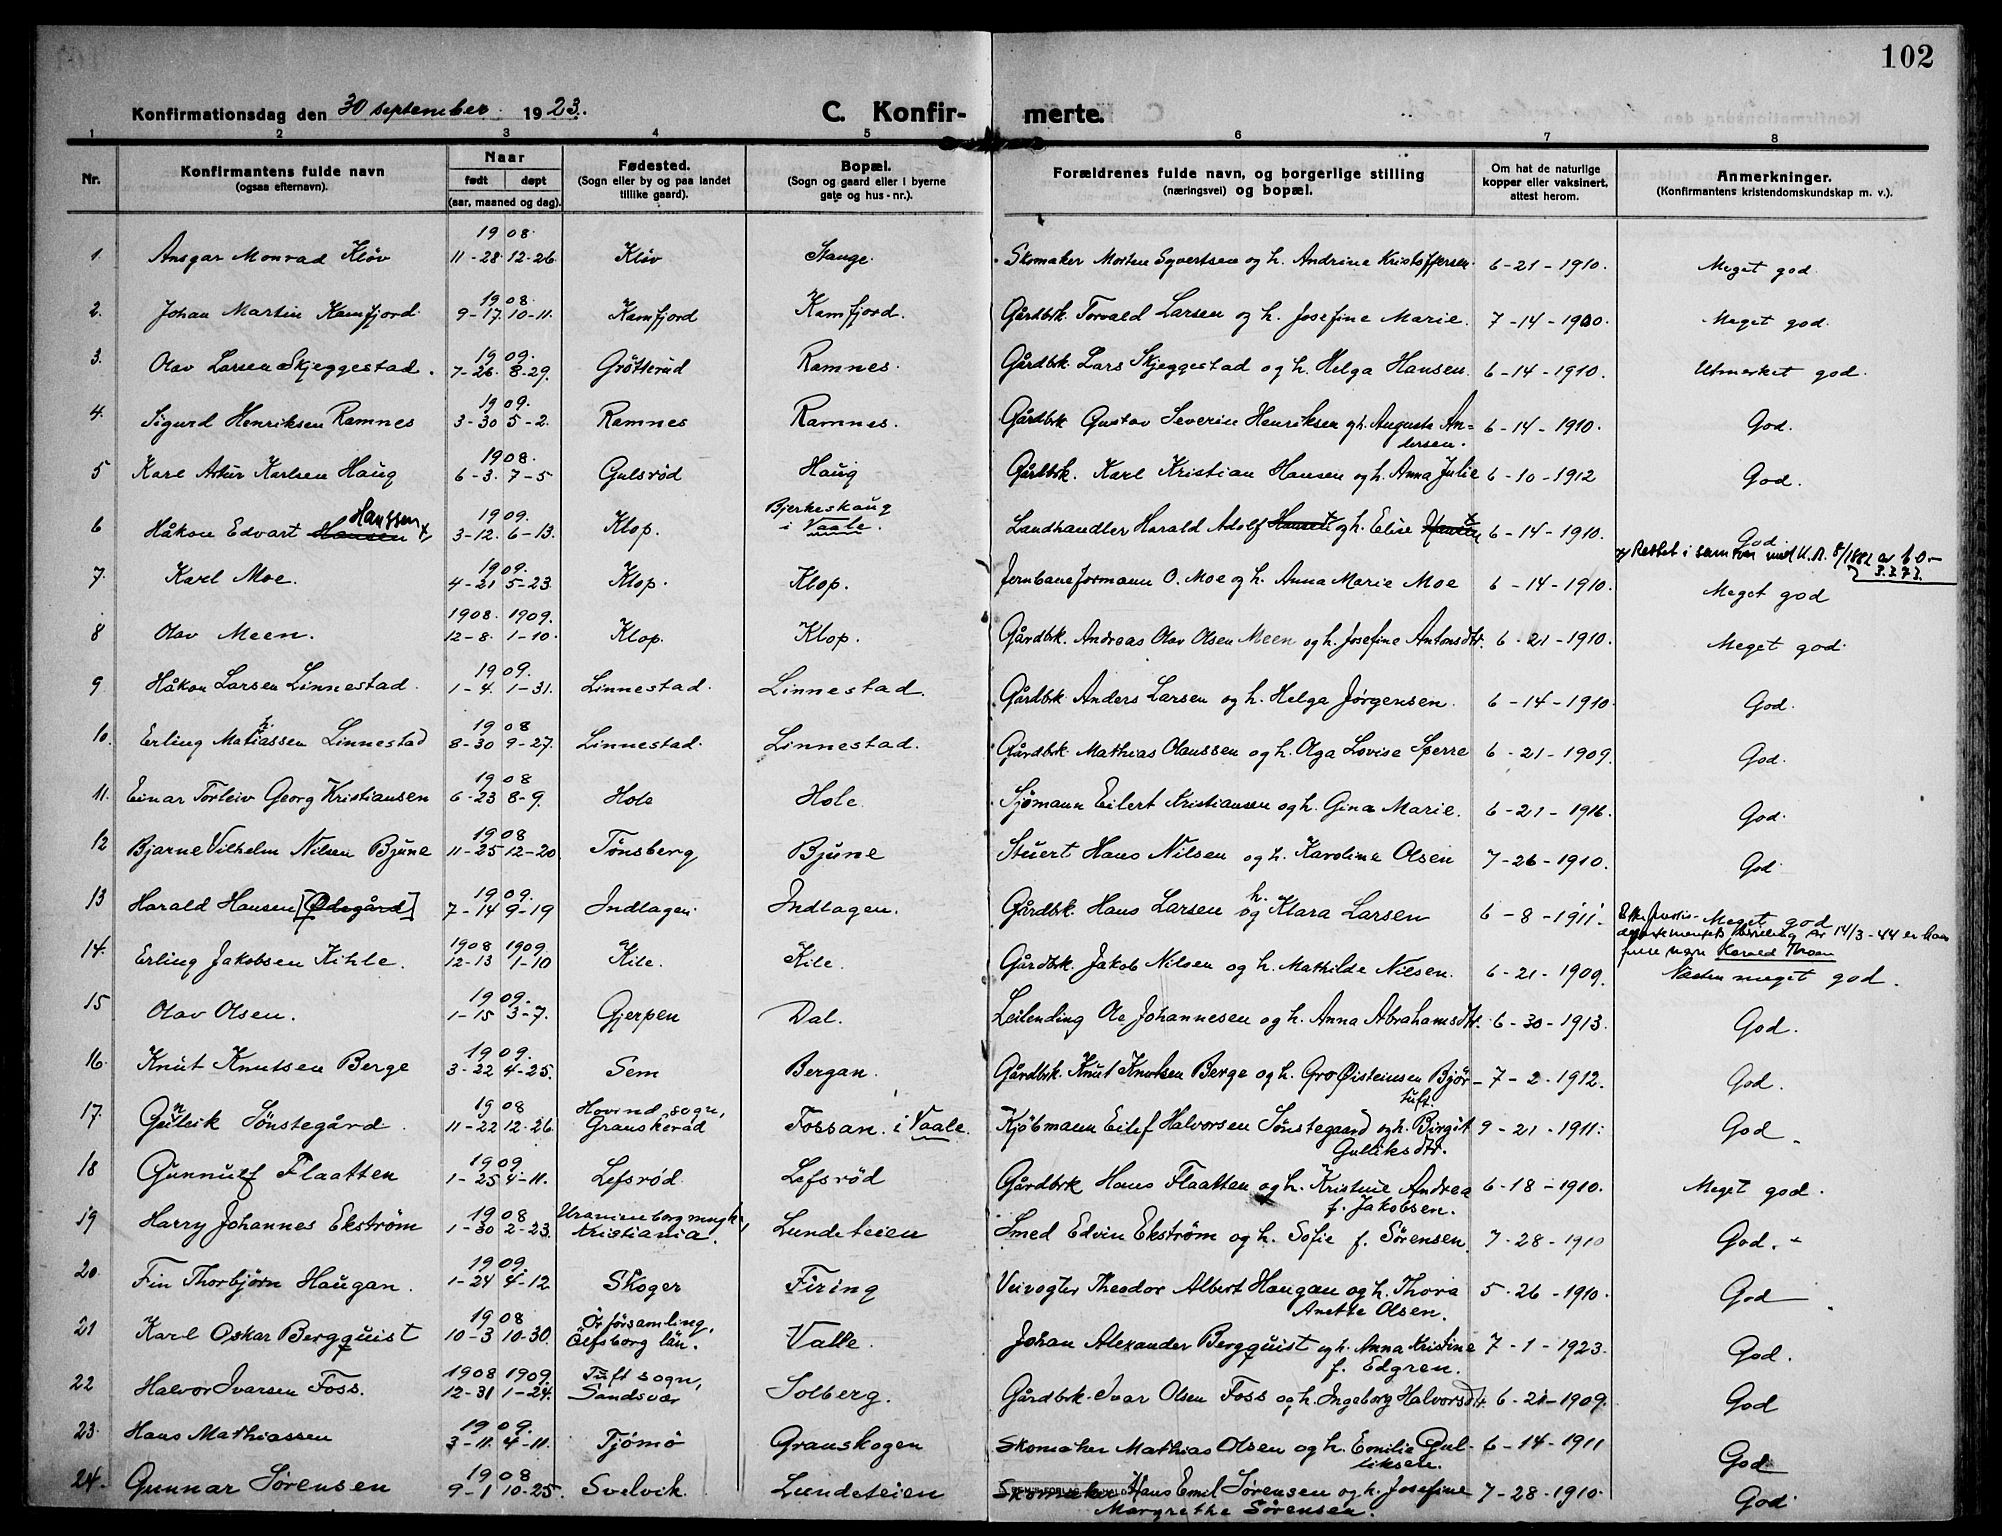 102
Konfirmationsdag den 30 september 1923.
C. Konfir- merte.
1 2 3 4 5 6 7 8
Nr.
Konfirmantens fulde navn
(ogsaa efternavn).
Naar
født døpt
(aar, maaned og dag).
Fødested.
(Sogn eller by og paa landet
tillike gaard).
Bopæl.
(Sogn og gaard eller i byerne
gate og hus-nr.).
Forældrenes fulde navn, og borgerlige stilling
(næringsvei) og bopæl.
Om hat de naturlige
kopper eller vaksinert,
attest herom.
Anmerkninger.
(Konfirmantens kristendomskundskap m. v.).
1908.
1. Ansgar Monrad Kløv 11-28 12-26 Kløv Stange. Skomaker Morten Syvertsen og h. Andrine Kristoffersen 6-21-1910. Meget god.
1908.
2. Johan Martin Kamfjord 9-17. 10-11. Kamfjord Kamfjord. Gårdbrk. Torvald Larsen og h. Josefine Marie. 7-14-1910. Meget god.
1909.
3. Olav Larsen Skjeggestad. 7-26. 8-29. Grötterud Ramnes. Gårdbrk. Lars Skjeggestad og h. Helga Hansen. 6-14-1910. Utmerket god.
1909.
4. Sigurd Henriksen Ramnes 3-30 5-2. Ramnes Ramnes. Gårdbrk Gustav Severin Henriksen og h. Augusta An-
dersen. 6-14-1910. God.
1908.
5 Karl Artur Karlsen Haug 6-3. 7-5 Gulsrød Haug Gårdbrk. Karl Kristian Hansen og h. Anna Julie 6-10-1912 God.
1909.
6 Håkon Edvart Hansen Hanssen x) 3-12. 6-13. Klop. Bjerkeskaug
i Vaale. Landhandler Harald Adolf Hansen og h. Elise 6-14-1910. God.
x) Rettet i samsvar med K.R. 8/1882
3.3.73.
1909.
7. Karl Moe. 4-21 5-23 Klop. Klop. Jernbaneformann O. Moe og h. Anna Marie Moe 6-14-1910. Meget god
1908. 1909.
8 Olav Meen. 12-8. 1-10. Klop. Klop. Gårdbrk. Andreas Olav Olsen Meen og h. Josefine Antonsdtr. 6-21-1910. Meget god.
1909.
9 Håkon Larsen Linnestad. 1-4. 1-31. Linnestad. Linnestad. Gårdbrk. Anders Larsen og h. Helga Jørgensen. 6-14-1910. God.
1908
10. Erling Mathiassen Linnestad 8-30 9-27. Linnestad. Linnestad. Gårdbrk. Mathias Olaussen og h. Olga Lovise Sperre 6-21-1909. God.
1908
11. Einar Torleiv Georg Kristiansen 6-23 8-9. Hole Hole. Sjømann Eilert Kristiansen og h. Gina Marie. 6-21-1916. God.
1908
12 Bjarne Vilhelm Nilsen Bjune 11-25 12-20 Tønsberg Bjune Stuert Hans Nilsen og h. Karoline Olsen 7-26-1910. God
1909.
13 Harald Hansen [Ødegård] 7-14 9-19 Indlagen. Indlagen. Gårdbrk. Hans Larsen og h. Klara Larsen 6-8-1911. Meget god
Efter Justis-
departementets bevilling av 14/3-44 er hans
fulle navn Harald Thoen
1908 1909.
14. Erling Jakobsen Kihle. 12-13 1-10 Kile. Kile. Gårdbrk. Jakob Nilsen og h. Mathilde Nilsen. 6-21-1909. Næsten meget god.
1909.
15 Olav Olsen. 1-15 3-7. Gjerpen Dal. Leilending Ole Johannesen og h. Anna Abrahamsdtr. 6-30-1913. God.
1909.
16. Knut Knutsen Berge 3-22 4-25. Sem Bergan. Gårdbrk. Knut Knutsen Berge og h. Gro Øisteinsen Bjør-
tuft. 7-2-1912. God.
1908
17. Gunleik Sønstegård. 11-22 12-26. Hovind sogn,
Gransherad Fossan. i Vaale. Kjøbmann Eilef Halvorsen Sønstegaard og h. Birgit
Gulliksdtr. 9-21-1911. God
1909.
18 Gunnulf Flaatten 1-25 4-11. Lefsrød. Lefsrød Gårdbrk Hans Flaatten og h. Kristine Andrea
f. Jakobsen. 6-18-1910. Meget god.
1908
19 Harry Johannes Ekstrøm 1-30 2-23. Uranienborg mngh.,
Kristiania. Lundeteien Smed Edvin Ekstrøm og h. Sofie f. Sørensen. 7-28-1910 God.
1909.
20. Fin Thorbjørn Haugan. 1-24 4-12 Skoger Firing Veivogter Theodor Albert Haugan og h. Thora
Anette Olsen. 5-26-1910. God
1908
21 Karl Oskar Bergquist 10-3 10-30. Ör församling,
Älfsborg län. Valle. Johan Alexander Bergquist og h. Anna Kristine
f. Edgren. 7-1-1923. God.
1908 1909.
22 Halvor Ivarsen Foss. 12-31 1-24. Tuft sogn,
Sandsvær Solberg. Gårdbrk. Ivar Olsen Foss og h. Ingeborg Halvorsdtr. 6-21-1909. God
1909.
23. Hans Mathiassen 3-11. 4-11. Tjømø Granskogen Skomaker Mathias Olsen og h. Emilie Gul-
liksen. 6-14-1911 God
1908
24. Gunnar Sørensen 9-1 10-25. Svelvik. Lundeteien Skomaker Hans Emil Sørensen og h. Josefine
Margrethe Sørensen. 7-28-1910. God.